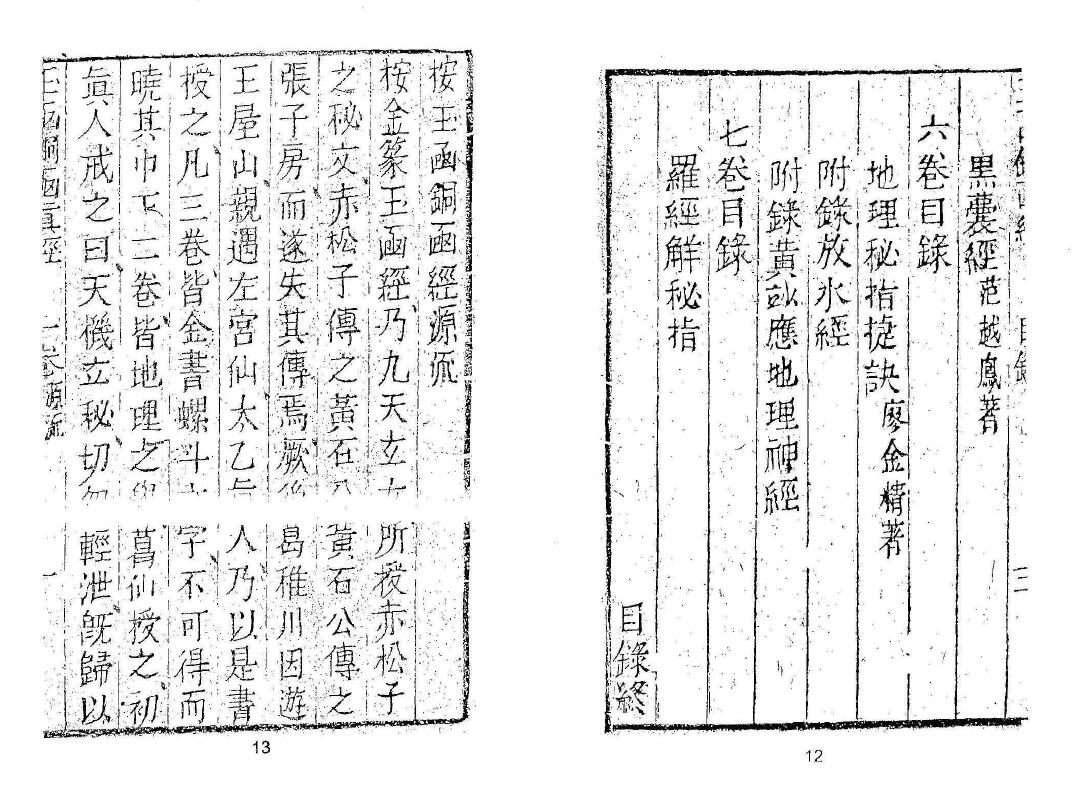 黑囊經范越鳳著
六卷目錄
地理秘指捷訣廖金精著
附錄放水經
附錄黃玅應地理神經
七卷目錄
羅經解秘指
目錄終
12
按玉函銅函經源流
按金篆玉函經乃九天玄女所授赤松子
之秘文赤松子傳之黃石公黃石公傳之
張子房而遂失其傳焉厥後葛稚川因遊
王屋山親遇左宮仙太乙眞人乃以是書
授之凡三卷皆金書螺斗文字不可得而
曉其中下二卷皆地理之學葛仙授之初
眞人戒之曰天機玄秘切勿輕泄旣歸以
玉函銅函眞經 一卷源流 一
13